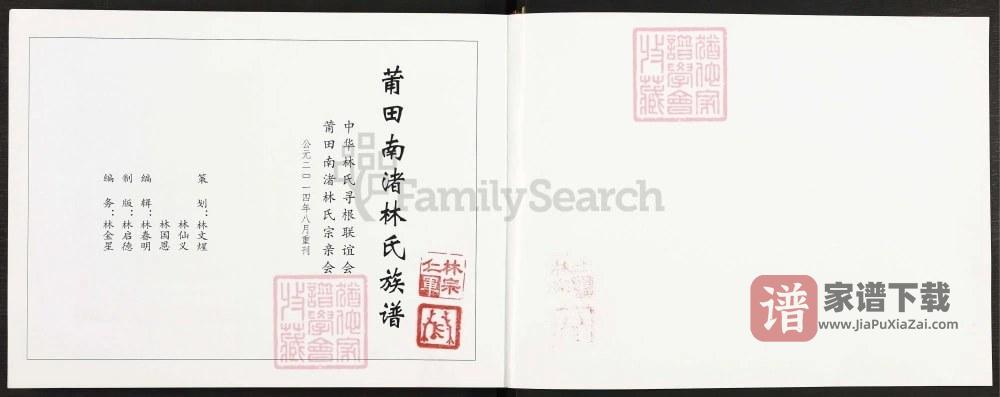 莆田南渚林氏族谱
中华林氏寻根联谊会
莆田南渚林氏宗亲会
公元二〇一四年八月重刊
策划：林文煋
林仙义
林国恩
编辑：林春明
制版：林启德
编务：林金星
林宗
仁軍
猶他家
譜學會
收藏
猶他家
譜學會
收藏
FamilySearch
谱
家谱下载
www.JiaPuXiaZai.com